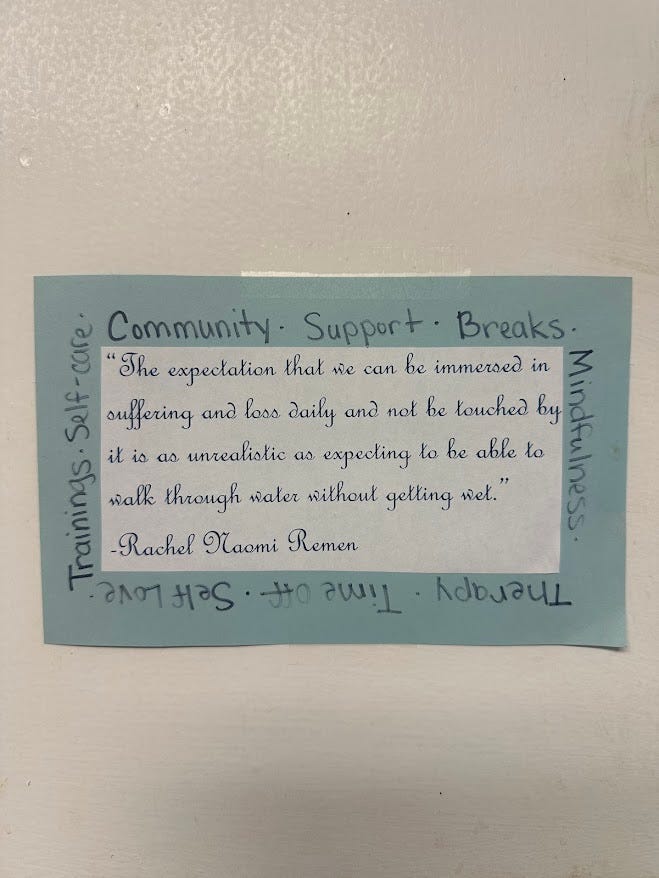 Community · Support · Breaks ·
Mindfulness ·
Therapy · Time Off · Self Love ·
Trainings · Self-care ·
“The expectation that we can be immersed in
suffering and loss daily and not be touched by
it is as unrealistic as expecting to be able to
walk through water without getting wet.”
-Rachel Naomi Remen